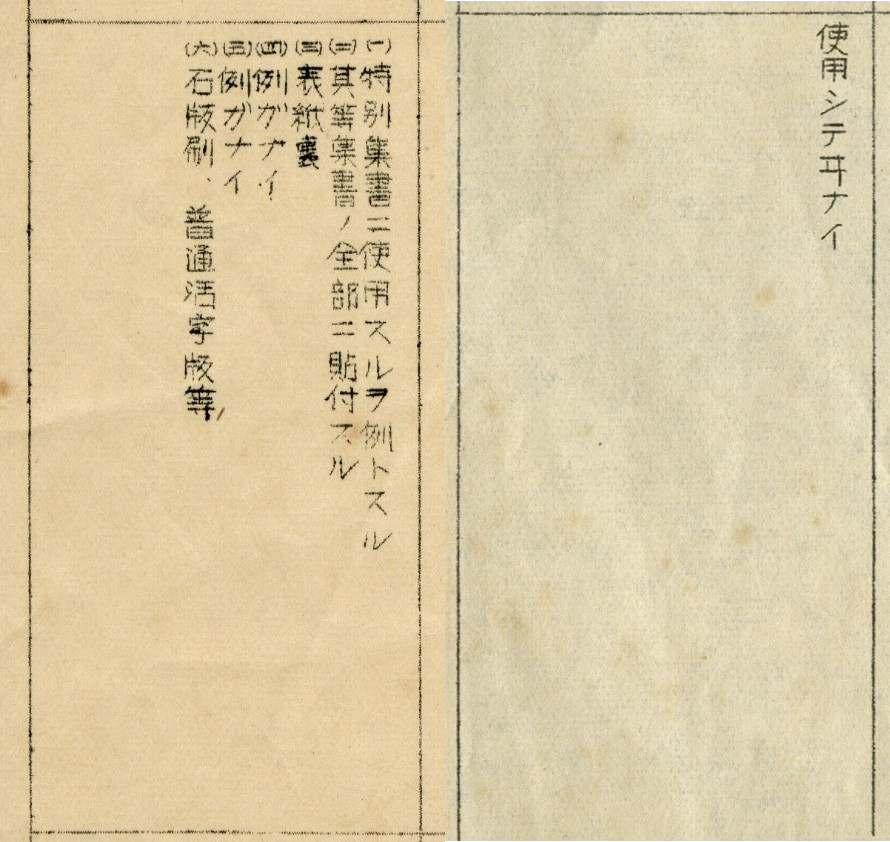 使用シテヰナイ
㈠特別集書ニ使用スルヲ例トスル
㈡其等集書ノ全部ニ貼付スル
㈢表紙裏
㈣例ガナイ
㈤例ガナイ
㈥石版刷、普通活字版等